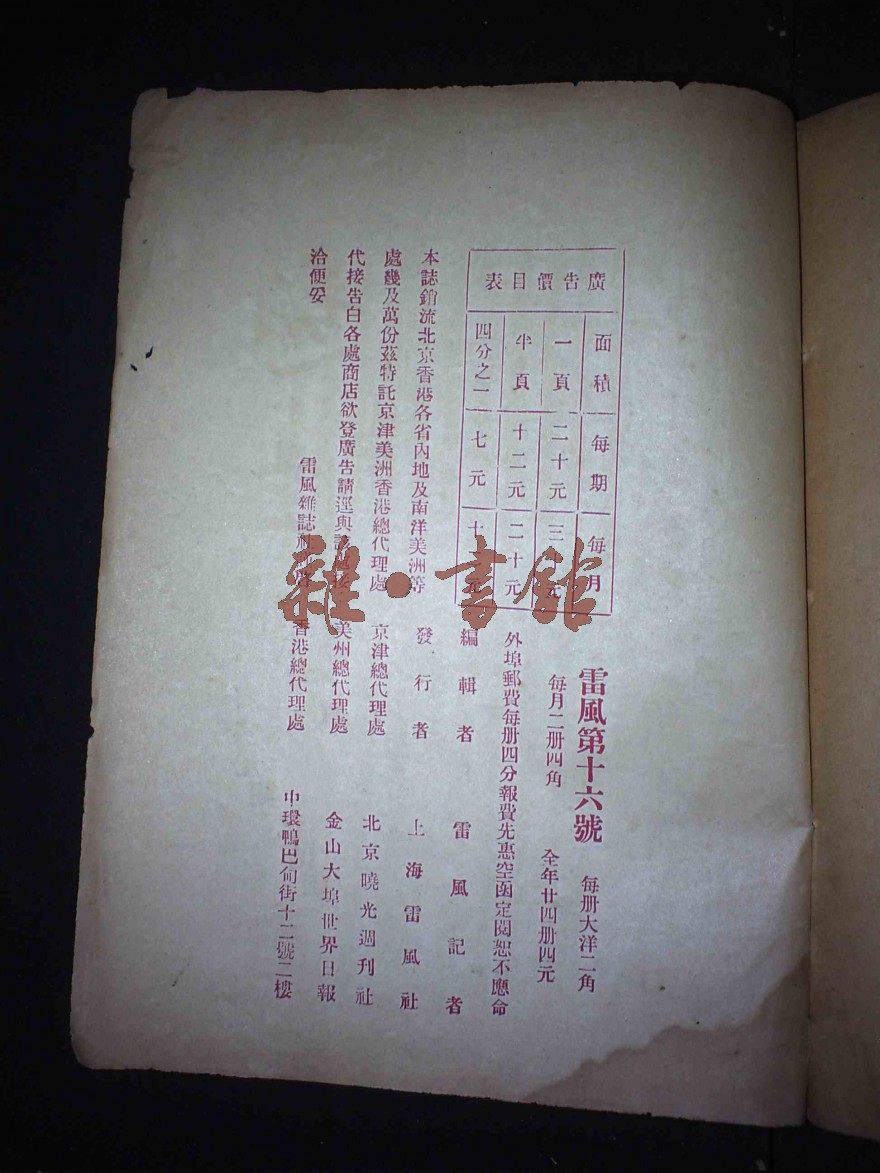 廣告價目表
面積 每期 每月
一頁 二十元 三元
半頁 十二元 二十元
四分之一 七元 十
本誌銷流北京香港各省內地及南洋美洲等
處幾及萬份茲特託京津美洲香港總代理處
代接告白各處商店欲登廣告請逕與接
洽便妥
雷風雜誌社
雷風第十六號 每册大洋二角
每月二册四角 全年廿四册四元
外埠郵費每册四分報費先惠空函定閱恕不應命
編輯者 雷風記者
發行者 上海雷風社
京津總代理處 北京曉光週刊社
美州總代理處 金山大埠世界日報
香港總代理處 中環鴨巴甸街十二號二樓
雜·書館